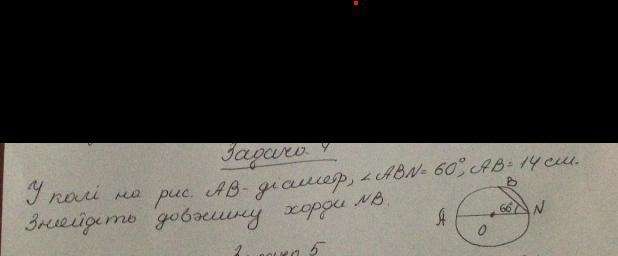 Задача 4
У колі на рис. AB - діаметр, ∠ABN = 60°, AB = 14 см.
Знайдіть довжину хорди NB.
B
A
60°
N
O
Задача 5